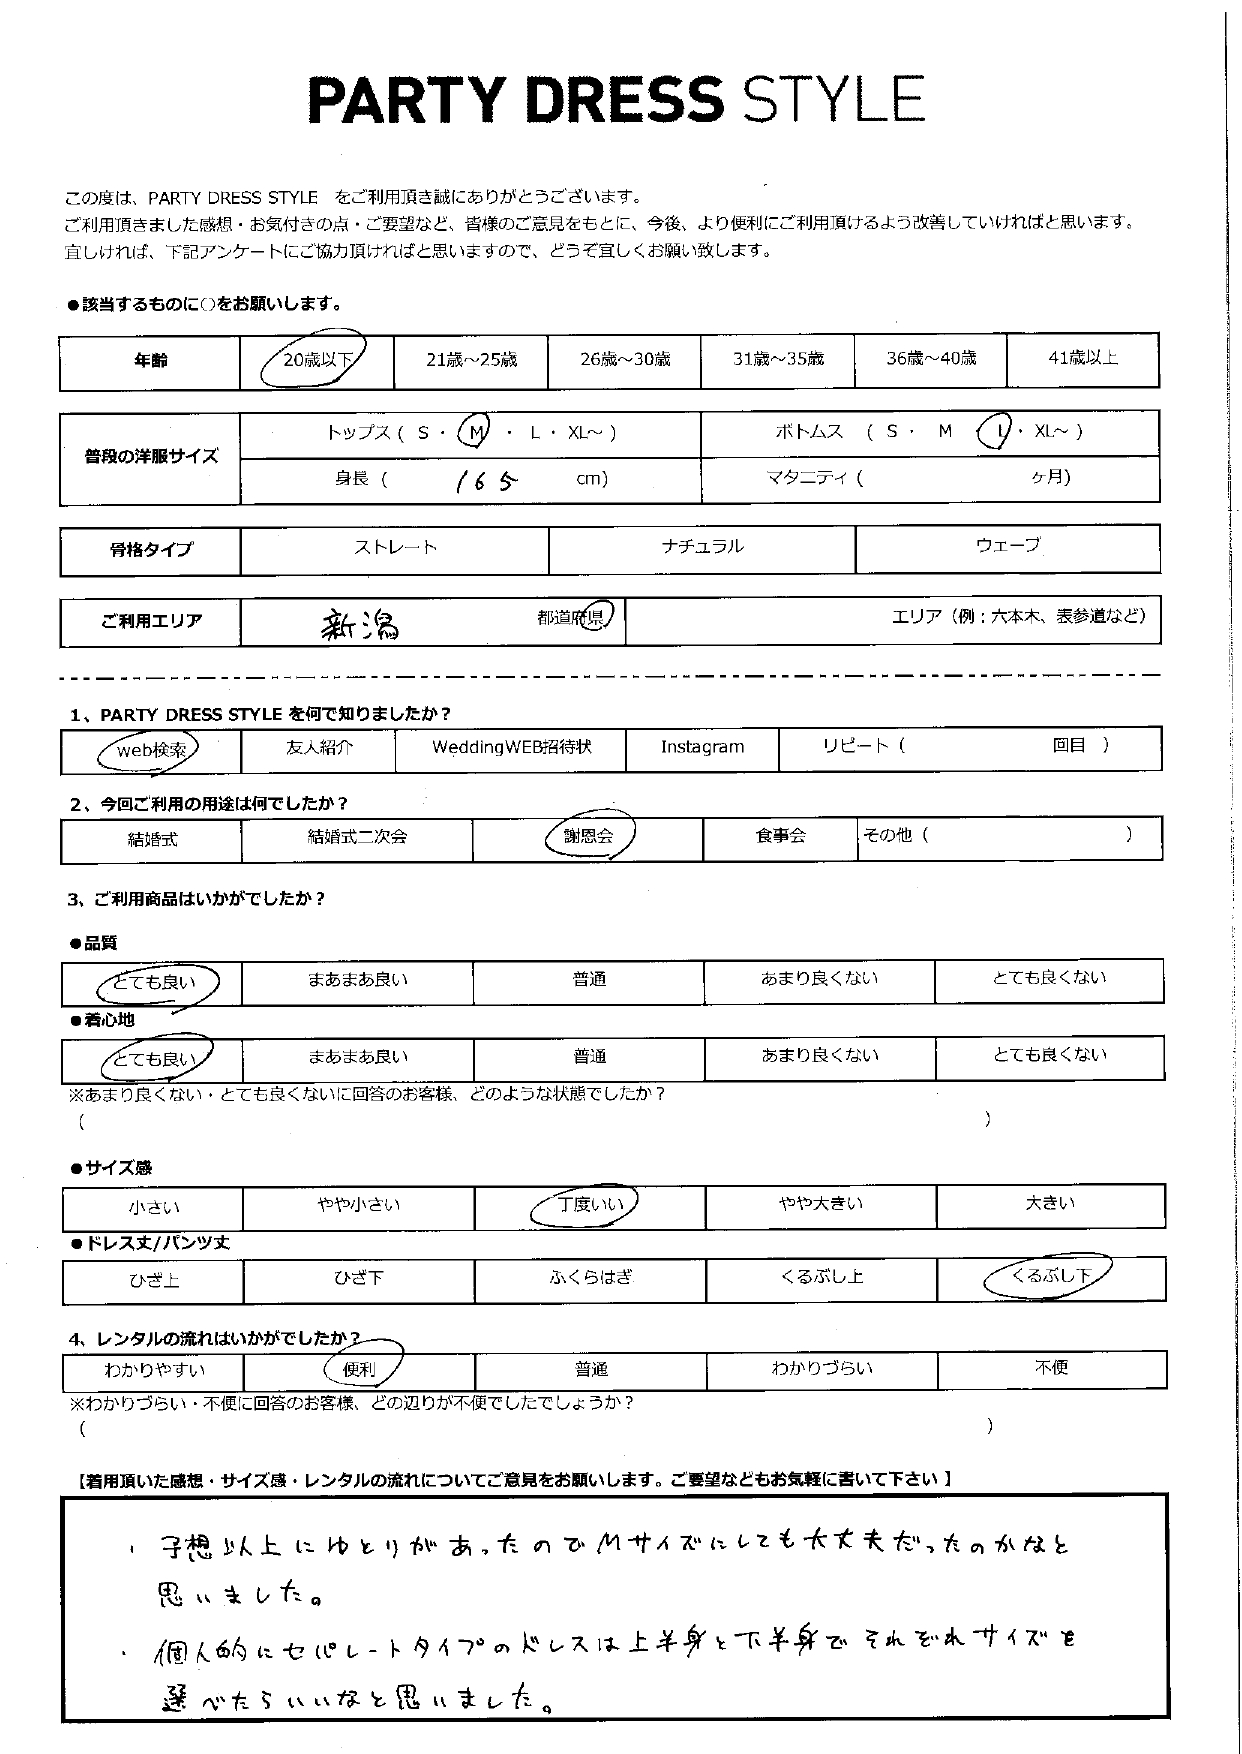 PARTY DRESS STYLE
この度は、PARTY DRESS STYLE をご利用頂き誠にありがとうございます。
ご利用頂きました感想・お気付きの点・ご要望など、皆様のご意見をもとに、今後、より便利にご利用頂けるよう改善していければと思います。
宜しければ、下記アンケートにご協力頂ければと思いますので、どうぞ宜しくお願い致します。
●該当するものに○をお願いします。
年齢 20歳以下 21歳～25歳 26歳～30歳 31歳～35歳 36歳～40歳 41歳以上
普段の洋服サイズ トップス ( S ・ M ・ L ・ XL～ ) ボトムス ( S ・ M ・ L ・ XL～ )
身長 ( 165 cm) マタニティ ( ヶ月)
骨格タイプ ストレート ナチュラル ウェーブ
ご利用エリア 新潟 都道府県 エリア（例：六本木、表参道など）
1、PARTY DRESS STYLE を何で知りましたか？
web検索 友人紹介 WeddingWEB招待状 Instagram リピート ( 回目 )
2、今回ご利用の用途は何でしたか？
結婚式 結婚式二次会 謝恩会 食事会 その他 ( )
3、ご利用商品はいかがでしたか？
●品質
とても良い まあまあ良い 普通 あまり良くない とても良くない
●着心地
とても良い まあまあ良い 普通 あまり良くない とても良くない
※あまり良くない・とても良くないに回答のお客様、どのような状態でしたか？
( )
●サイズ感
小さい やや小さい 丁度いい やや大きい 大きい
●ドレス丈/パンツ丈
ひざ上 ひざ下 ふくらはぎ くるぶし上 くるぶし下
4、レンタルの流れはいかがでしたか？
わかりやすい 便利 普通 わかりづらい 不便
※わかりづらい・不便に回答のお客様、どの辺りが不便でしたでしょうか？
( )
【着用頂いた感想・サイズ感・レンタルの流れについてご意見をお願いします。ご要望などもお気軽に書いて下さい】
・予想以上にゆとりがあったのでMサイズにしても大丈夫だったのかなと
思いました。
・個人的にセパレートタイプのドレスは上半身と下半身でそれぞれサイズを
選べたらいいなと思いました。